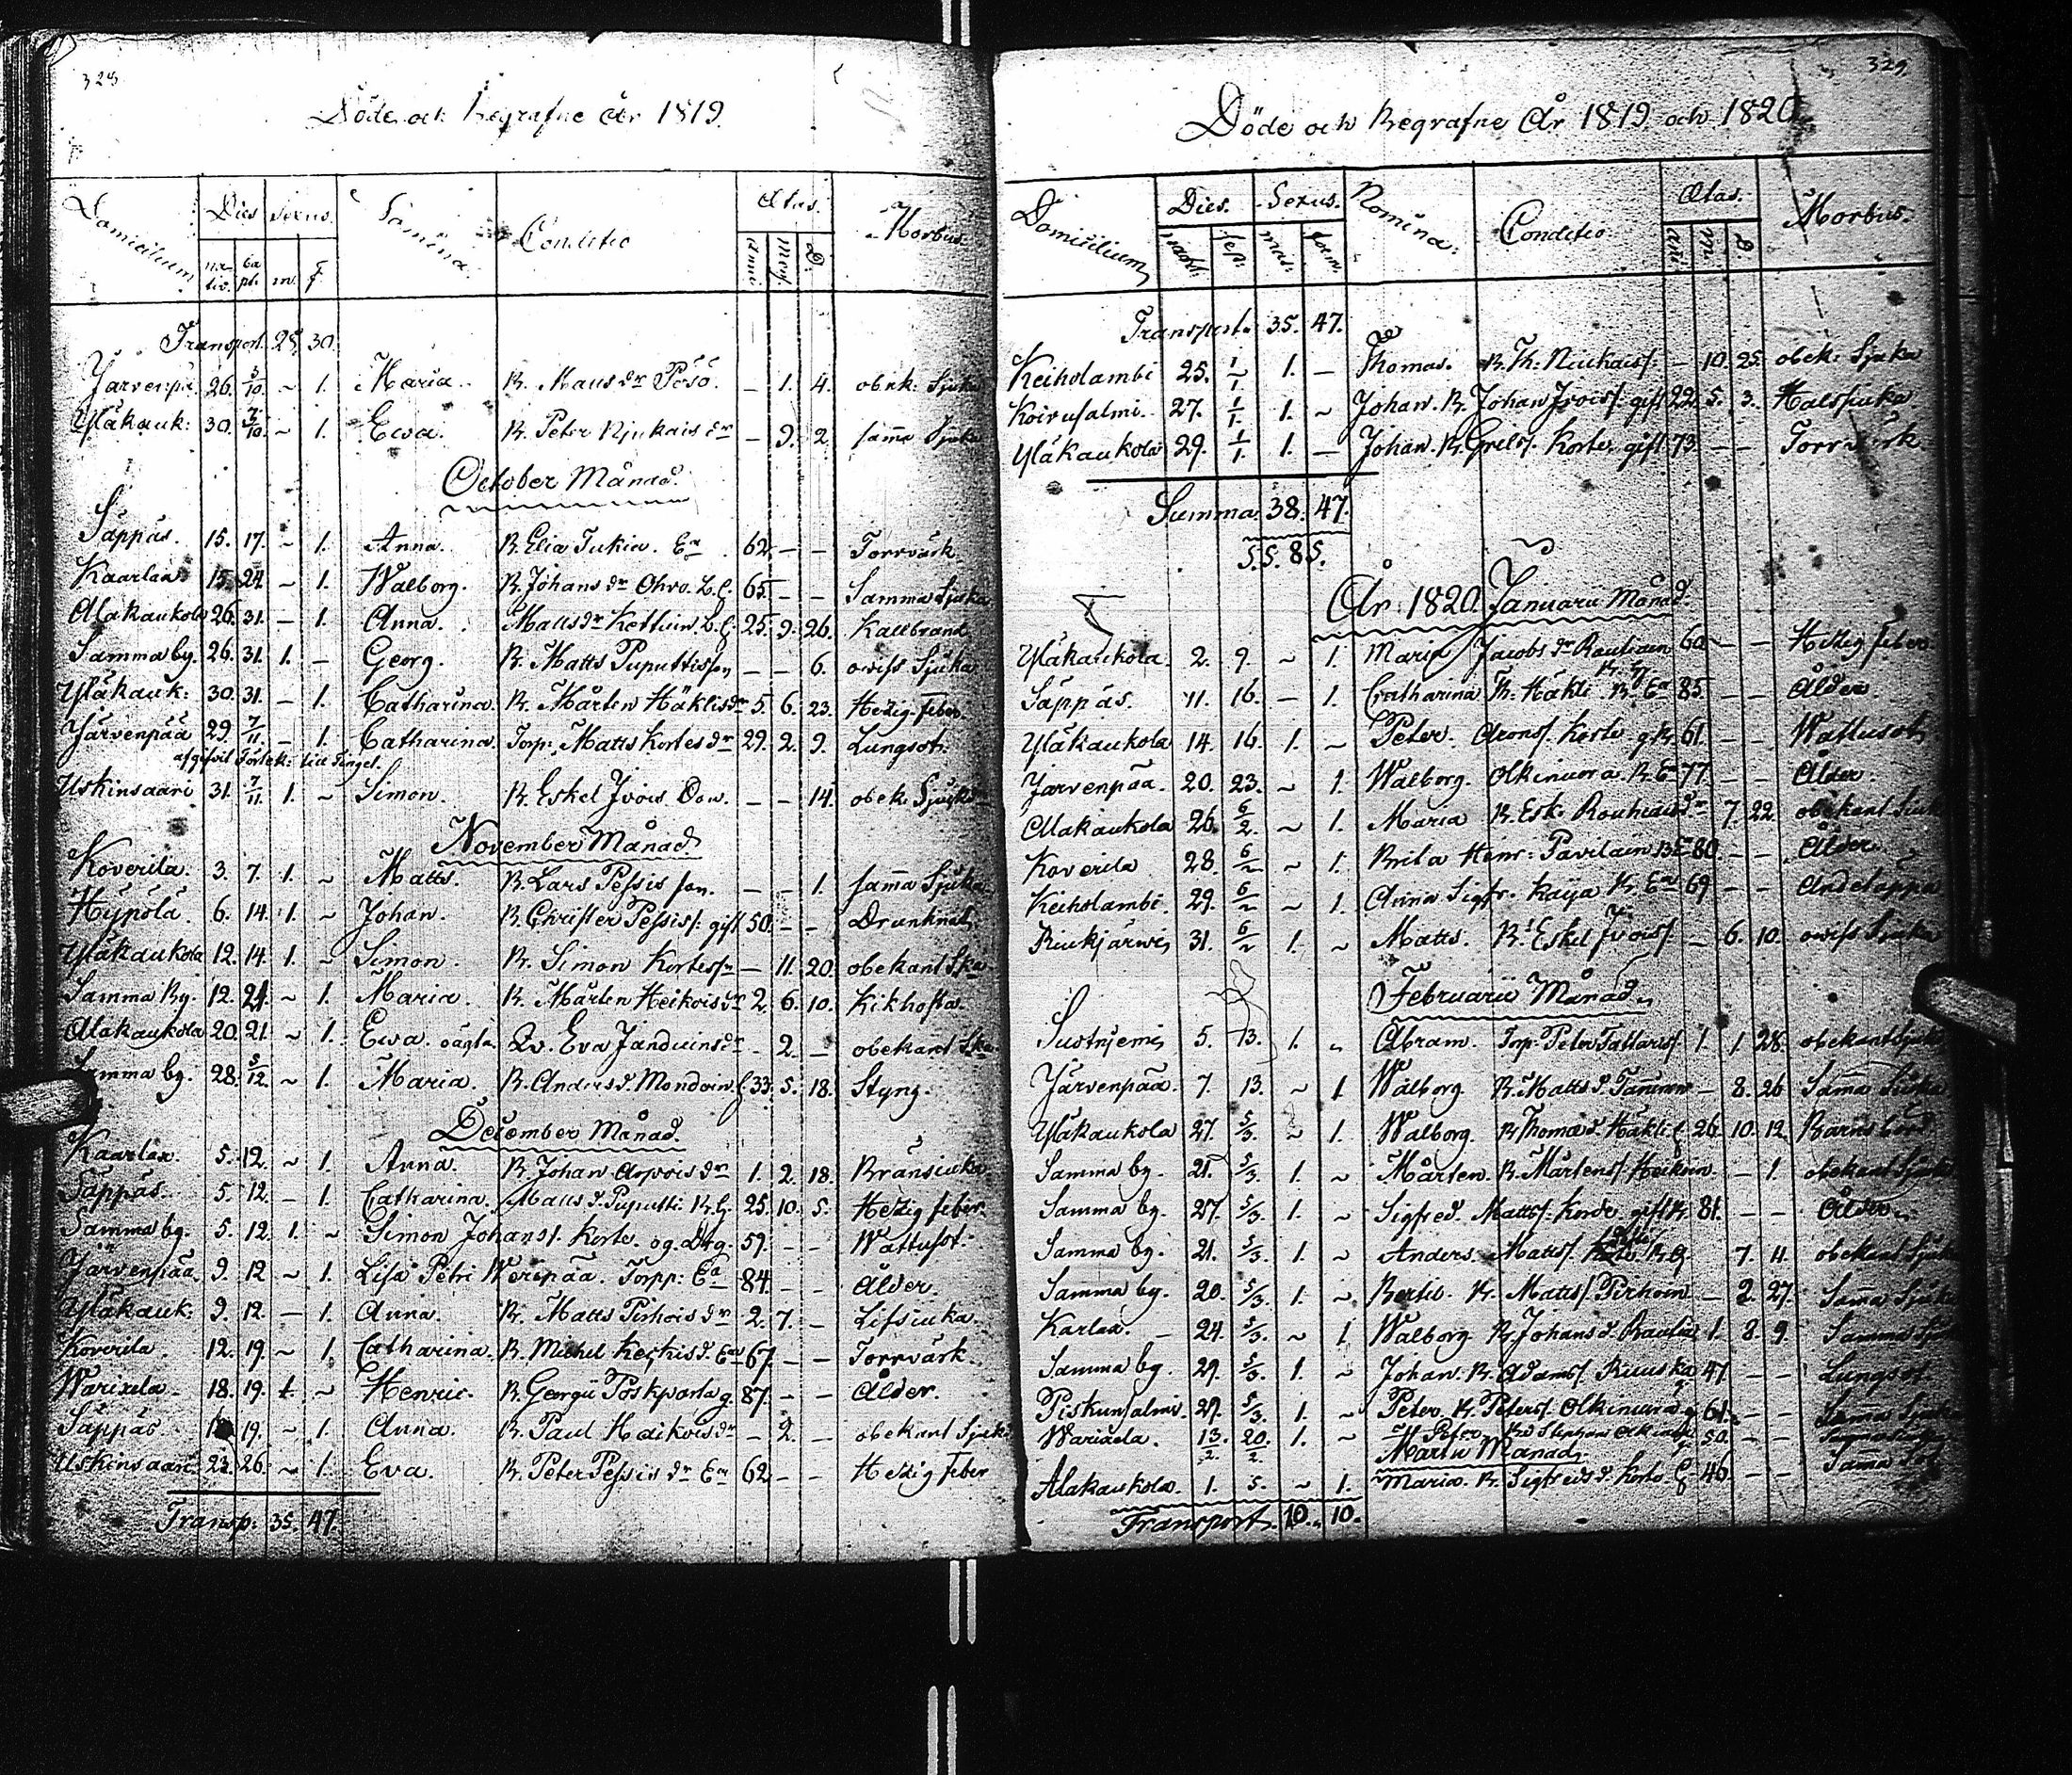 328
Döde och Begrafne År 1819.
Domicilium Dies Sexus. Nomina. Conditio Ætas. Morbus.
na- tiv. ba pt. m. f. anni Mens. D:
Transport. 25. 30.
Järvenpä. 26. 5/10 ~ 1. Maria. B. Matts dr Pösö. – 1. 4. obek. Sjuka
Yläkauk: 30. 3/10 ~ 1. Ewa. B. Peter Njukais dr – 9. 2. samma Sjuka
October Månad.
Säppäs. 15. 17. ~ 1. Anna. B. Elia Tukia. Ea 62. – – Torrvärk.
Kaarlax 15. 24. ~ 1. Walborg. B. Johans dr Ohvo. 65. – – Samma Sjuka
Alakaukola 26. 31. – 1. Anna. Matts dr 25. 9. 26. Kallbrand
Samma by. 26. 31. 1. – Georg. B. Matts Puputtisson – – 6. oviss Sjuka
Yläkauk: 30. 31. – 1. Catharina. B. Mårten Häklis dr 5. 6. 23. Hetzig feber.
Järvenpää 29. 7/11 – 1. Catharina. Torp: Matts Kortes dr 29. 2. 9. Lungsot.
Uskinsaari 31. 7/11 1. ~ Simon. B. Eskel Ivois – – 14. obek. Sjuka
November Månad
Koverila. 3. 7. 1. ~ Matts. B. Lars Pessis son. – – 1. samma Sjuka
Hypölä. 6. 14. 1. ~ Johan. B. Christer Pessis: gift 50. – – Drunknad
Yläkaukola 12. 14. 1. ~ Simon. B. Simon – 11. 20. obekant
Samma By. 12. 21. ~ 1. Maria. B. Mårten Heikois dr 2. 6. 10. Kikhosta.
Alakaukola 20. 21. ~ 1. Ewa. oägta. Eva – 2. – obekant
Samma by. 28. 5/12 ~ 1. Maria. B. Anders d. Mondoin 33. 5. 18. Styng.
December Månad.
Kaarlax 5. 12. ~ 1. Anna. B. Johan Arvois dr 1. 2. 18. Bränsiuka
Säppäs. 5. 12. – 1. Catharina. Matts d. Puputti. 25. 10. 5. Hetzig feber.
Samma by. 5. 12. 1. ~ Simon Johans. Korte. 59. – – Wattusot.
Järvenpää 9. 12 ~ 1. Lisa Petri Weripää. Torpp: Ea 84. – – Ålder.
Yläkauk: 9. 12. – 1. Anna. B. Matts Pirhois dr 2. 7. – Lifsiuka.
Koverila. 12. 19. ~ 1. Catharina. B. Michel Keskis d. Ea 67. – – Torrvärk.
Warixela. 18. 19. 1. ~ Henric. B. Georgii g. 87. – – Ålder.
Säppäs 19. ~ 1. Anna. B. Paul Haikois dr – 2. – obekant Sjuka
Uskinsaari 23. 26. ~ 1. Eva. B. Peter Pessis dr Ea 62. – – Hetzig feber
Transp: 35. 47.
329
Döde och Begrafne År 1819 och 1820.
Domicilium Dies. Sexus. Nomina: Conditio Ætas. Morbus.
sep: mas: foem. an: m. D.
Transport. 35. 47.
Keiholambi 25. 1/1 1. – Thomas. B. Th: Niukais. – 10. 25. obek: Sjuka
Koivusalmi. 27. 1/1 1. ~ Johan. B. Johan Ivois. gift 22. 5. 3. Halssiuka
Yläkaukola 29. 1/1 1. – Johan. B. Grels. Korte, gift 73. – – Torrvärk
Summa 38. 47.
S.S. 85.
År 1820. Januarii Månad.
Yläkaukola. 2. 9. ~ 1. Maria Jacobs dr Rautiain 60 – – Hetzig feber
Säppäs. 11. 16. – 1. Catharina Th. Häkli. B. Ea 85 – – Ålder.
Yläkaukola 14. 16. 1. ~ Peter. Arons. Korte 61. – – Wattusot
Järvenpää. 20. 23. ~ 1. Walborg. Olkinuora. B. Ea 77 – – Ålder.
Alakaukola 26. 6/2 ~ 1. Maria B. Esk. Rouhiais dr 7. 22. obekant Siuk
Koverila 28. 6/2 ~ 1. Brita Henr: Pavilain 80. – – Ålder.
Keiholambi. 29. 6/2 ~ 1. Anna Sigfr. Kaija B. Ea 69 – – Andetäppa
Riukjärwi 31. 6/2 1. ~ Matts. B. Eskel Ivois. – 6. 10. oviss Sjuka
Februarii Månad.
5. 13. 1. Abram. Torp. Peter Tattaris. 1. 1. 28. obekant Sjuka
Järvenpää. 7. 13. ~ 1. Walborg B. Matts d. – 8. 26 Samma Sjuka
Yläkaukola 27. 5/3. ~ 1. Walborg. B. Thomæ d. Häkli 26. 10. 12. Barns börd
Samma by. 21. 5/3. 1. ~ Mårten. B. Mårtens. Heikoin. – 1. obekant Sjuka
Samma by. 27. 5/3. 1. ~ Sigfred. Matts. Korte gift 81. – – Ålder.
Samma by. 21. 5/3. 1. ~ Anders. Matts. 7. 11. obekant Sjuka
Samma by. 20. 5/3. 1. ~ Bertil. B. Matts. Pirhoin – 2. 27. Samma Sjuka
Karlax. 24. 5/3. ~ 1. Walborg B. Johans d. Rautia 1. 8. 9. Samma Sjuk
Samma by. 29. 5/3. 1. ~ Johan. B. Adams. Ruuska 47 – – Lungsot.
Piskunsalmi. 29. 5/3. 1. ~ Peter. B. Peters. Olkinuora 61. – – Samma Sjuka
Warixela. 13/2. 20/2. 1. ~ Peter. 50. – –
Martii Månad.
Alakaukola. 1. 5. ~ 1. Maria. B. Sigfreds d. Korte 46. – – Samma Sot
Transport. 10. 10.